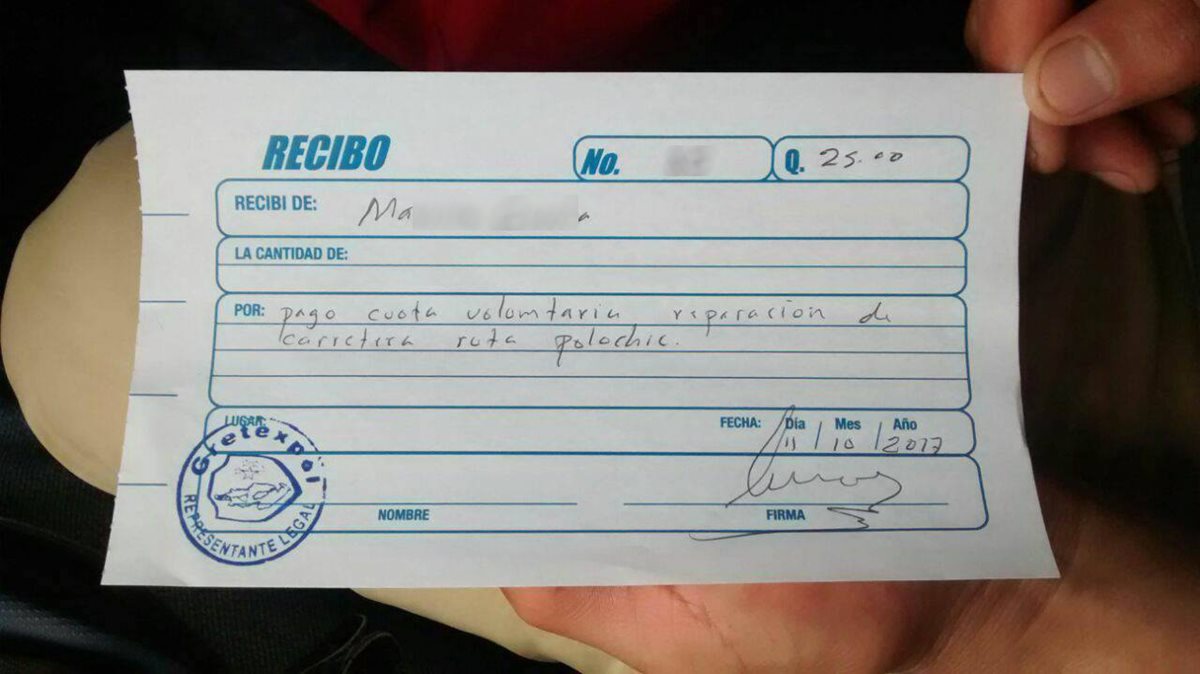 RECIBO
No.
Q. 25.00
RECIBI DE: Ma
LA CANTIDAD DE:
POR: pago cuota voluntaria reparación de
carretera ruta polochic.
LUGAR:
FECHA: Día Mes Año
11 / 10 / 2017
Gretexpol
REPRESENTANTE LEGAL
NOMBRE
FIRMA